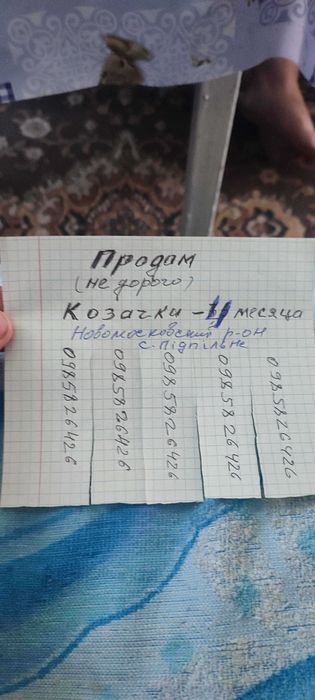 Продам
(не дорого)
Козачки - 4 месяца
Новомосковский р-он
с. Підпільне
0985826426
0985826426
0985826426
0985826426
0985826426